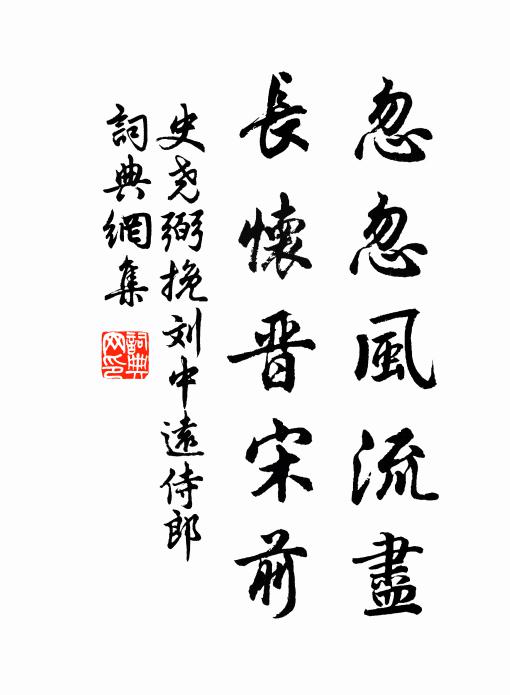 忽忽風流盡
長懷晋宋前
史尧弼挽刘中遠侍郎
詞典網集
詞典網印